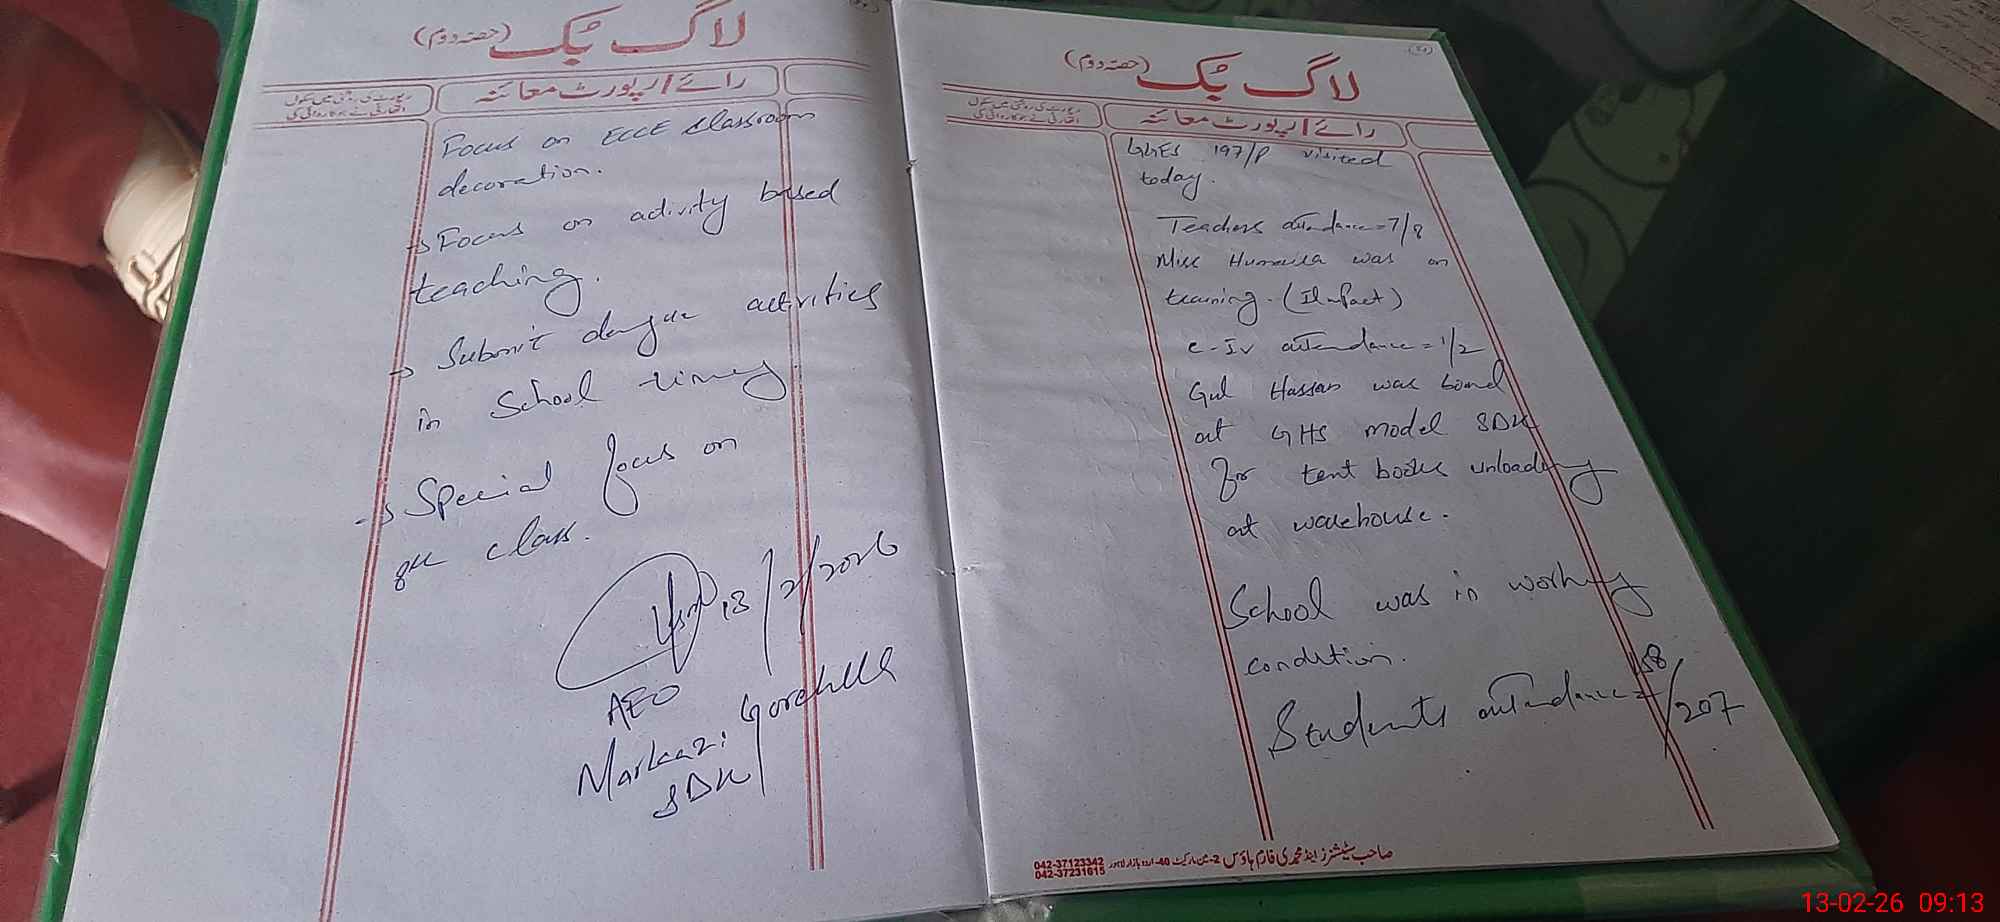 لاگ بک (حصہ دوم)
رائے / رپورٹ معائنہ
رپورٹ کی روشنی میں سکول
اتھارٹی نے جو کاروائی کی
GGES 197/P visited
today.
Teachers attendance = 7/8
Miss Humaira was on
training. (Impact)
C-IV attendance = 1/2
Gul Hassan was
at GHS model SDK
for text books unloading
at warehouse.
School was in working
condition.
Students attendance = 158/207
صاحب سٹیشنرز اینڈ محمدی فارم ہاؤس 2-مین مارکیٹ 40-اردو بازار لاہور
042-37123342
042-37231615
لاگ بک (حصہ دوم)
رائے / رپورٹ معائنہ
رپورٹ کی روشنی میں سکول
اتھارٹی نے جو کاروائی کی
Focus on ECCE classroom
decoration.
→ Focus on activity based
teaching.
→ Submit dengue activities
in School timing.
→ Special focus on
8th class.
13/2/2026
AEO
Markaz:
SDK
13-02-26 09:13